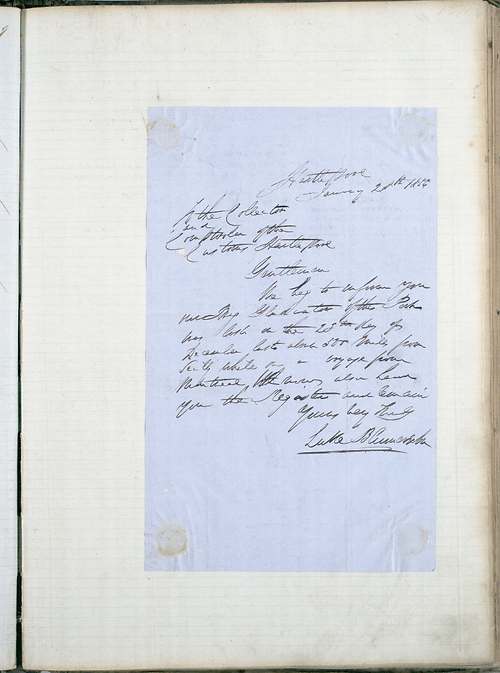 Hartlepool
January 28th 1856
To the Collector
and
Comptroller of the
Customs Hartlepool
Gentlemen
We beg to inform you
our Brig Gladiator of this Port
was lost on the 25th day of
December last about 500 Miles from
while on a voyage from
Montreal, also hand
you the Register and remain
Yours very truly
Luke Blumer